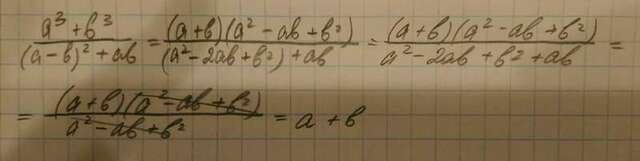 (a³ + b³)/((a-b)² + ab) = ((a+b)(a² - ab + b²))/((a² - 2ab + b²) + ab) = ((a+b)(a² - ab + b²))/(a² - 2ab + b² + ab) =
= ((a+b)(a² - ab + b²))/(a² - ab + b²) = a + b